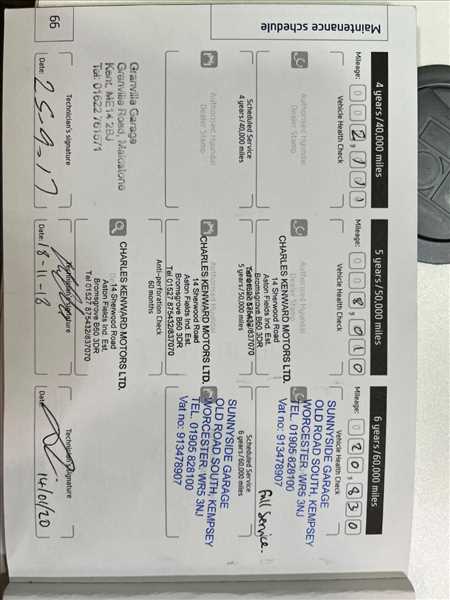 Maintenance schedule
4 years/40,000 miles
Mileage: 002,111
Vehicle Health Check
Authorised Hyundai
Dealer Stamp
Scheduled Service
4 years/40,000 miles
Authorised Hyundai
Dealer Stamp
Granville Garage
Granville Road, Maidstone
Kent, ME14 2BJ
Technician's signature
Date: 25-9-17
66
5 years/50,000 miles
Mileage: 008,010
Vehicle Health Check
Authorised Hyundai
CHARLES KENWARD MOTORS LTD.
14 Sherwood Road
Aston Fields Ind. Est.
Bromsgrove B60 3DR
5 years/50,000 miles
Authorised Hyundai
CHARLES KENWARD MOTORS LTD.
14 Sherwood Road
Aston Fields Ind. Est.
Bromsgrove B60 3DR
Tel 01527 875432/837070
Anti-perforation Check
60 months
CHARLES KENWARD MOTORS LTD.
14 Sherwood Road
Aston Fields Ind. Est.
Bromsgrove B60 3DR
Tel 01527 875432/837070
Technician's signature
Date: 18-11-18
6 years/60,000 miles
Mileage: 020,830
Vehicle Health Check
SUNNYSIDE GARAGE
OLD ROAD SOUTH, KEMPSEY
WORCESTER. WR5 3NJ
TEL. 01905 828100
Vat no: 913478907
Full Service.
Scheduled Service
6 years/60,000 miles
SUNNYSIDE GARAGE
OLD ROAD SOUTH, KEMPSEY
WORCESTER. WR5 3NJ
TEL. 01905 828100
Vat no: 913478907
Technician's signature
Date: 14/01/20